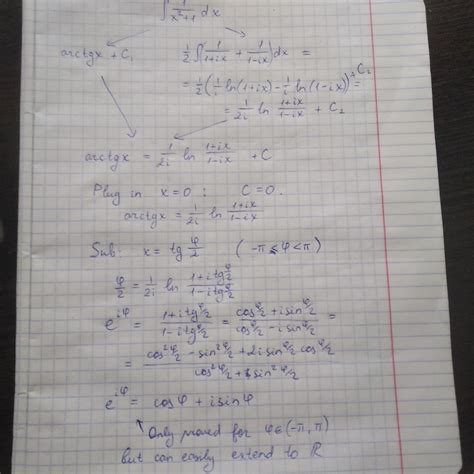 ∫ 1/(x²+1) dx
arctgx + C₁    1/2 ∫ (1/(1+ix) + 1/(1-ix)) dx =
= 1/2 (1/i ln(1+ix) - 1/i ln(1-ix)) + C₂ =
= 1/2i ln (1+ix)/(1-ix) + C₂
arctgx = 1/2i ln (1+ix)/(1-ix) + C
Plug in x=0 : C=0.
arctgx = 1/2i ln (1+ix)/(1-ix)
Sub: x = tg φ/2 (-π ≤ φ < π)
φ/2 = 1/2i ln (1+i tg φ/2)/(1-i tg φ/2)
e^(iφ) = (1+i tg φ/2)/(1-i tg φ/2) = (cos φ/2 + i sin φ/2)/(cos φ/2 - i sin φ/2) =
= (cos² φ/2 - sin² φ/2 + 2i sin φ/2 cos φ/2)/(cos² φ/2 + sin² φ/2)
e^(iφ) = cosφ + i sinφ
Only proved for φ∈(-π, π)
but can easily extend to ℝ